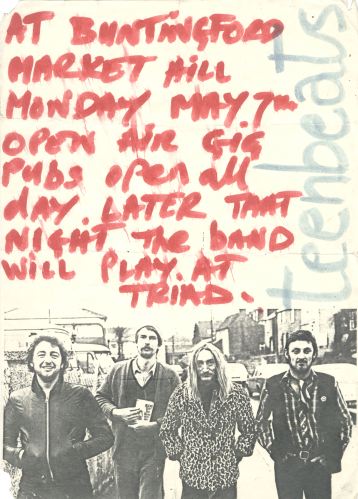 AT BUNTINGFORD
MARKET HILL
MONDAY MAY 7TH
OPEN AIR GIG
PUBS OPEN all
dAY LATER THAT
NIGHT THE BAND
WILL PLAY. AT
TRIAD.
teenbeats